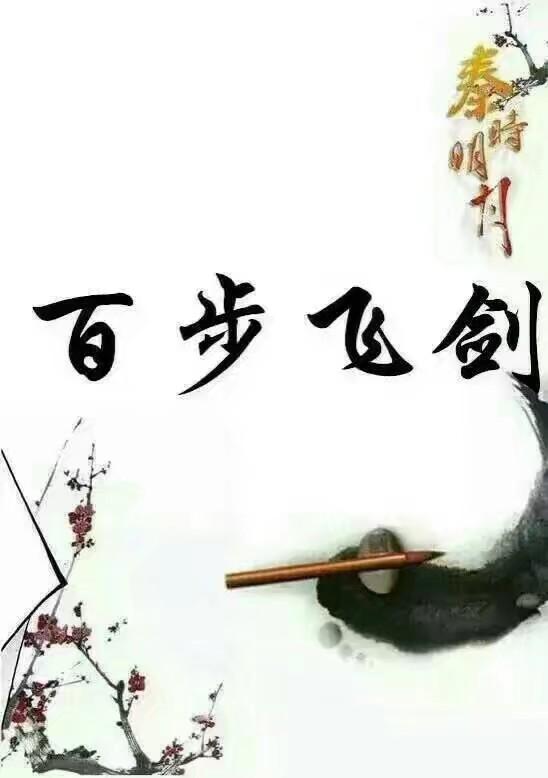 秦時明月
百步飞剑